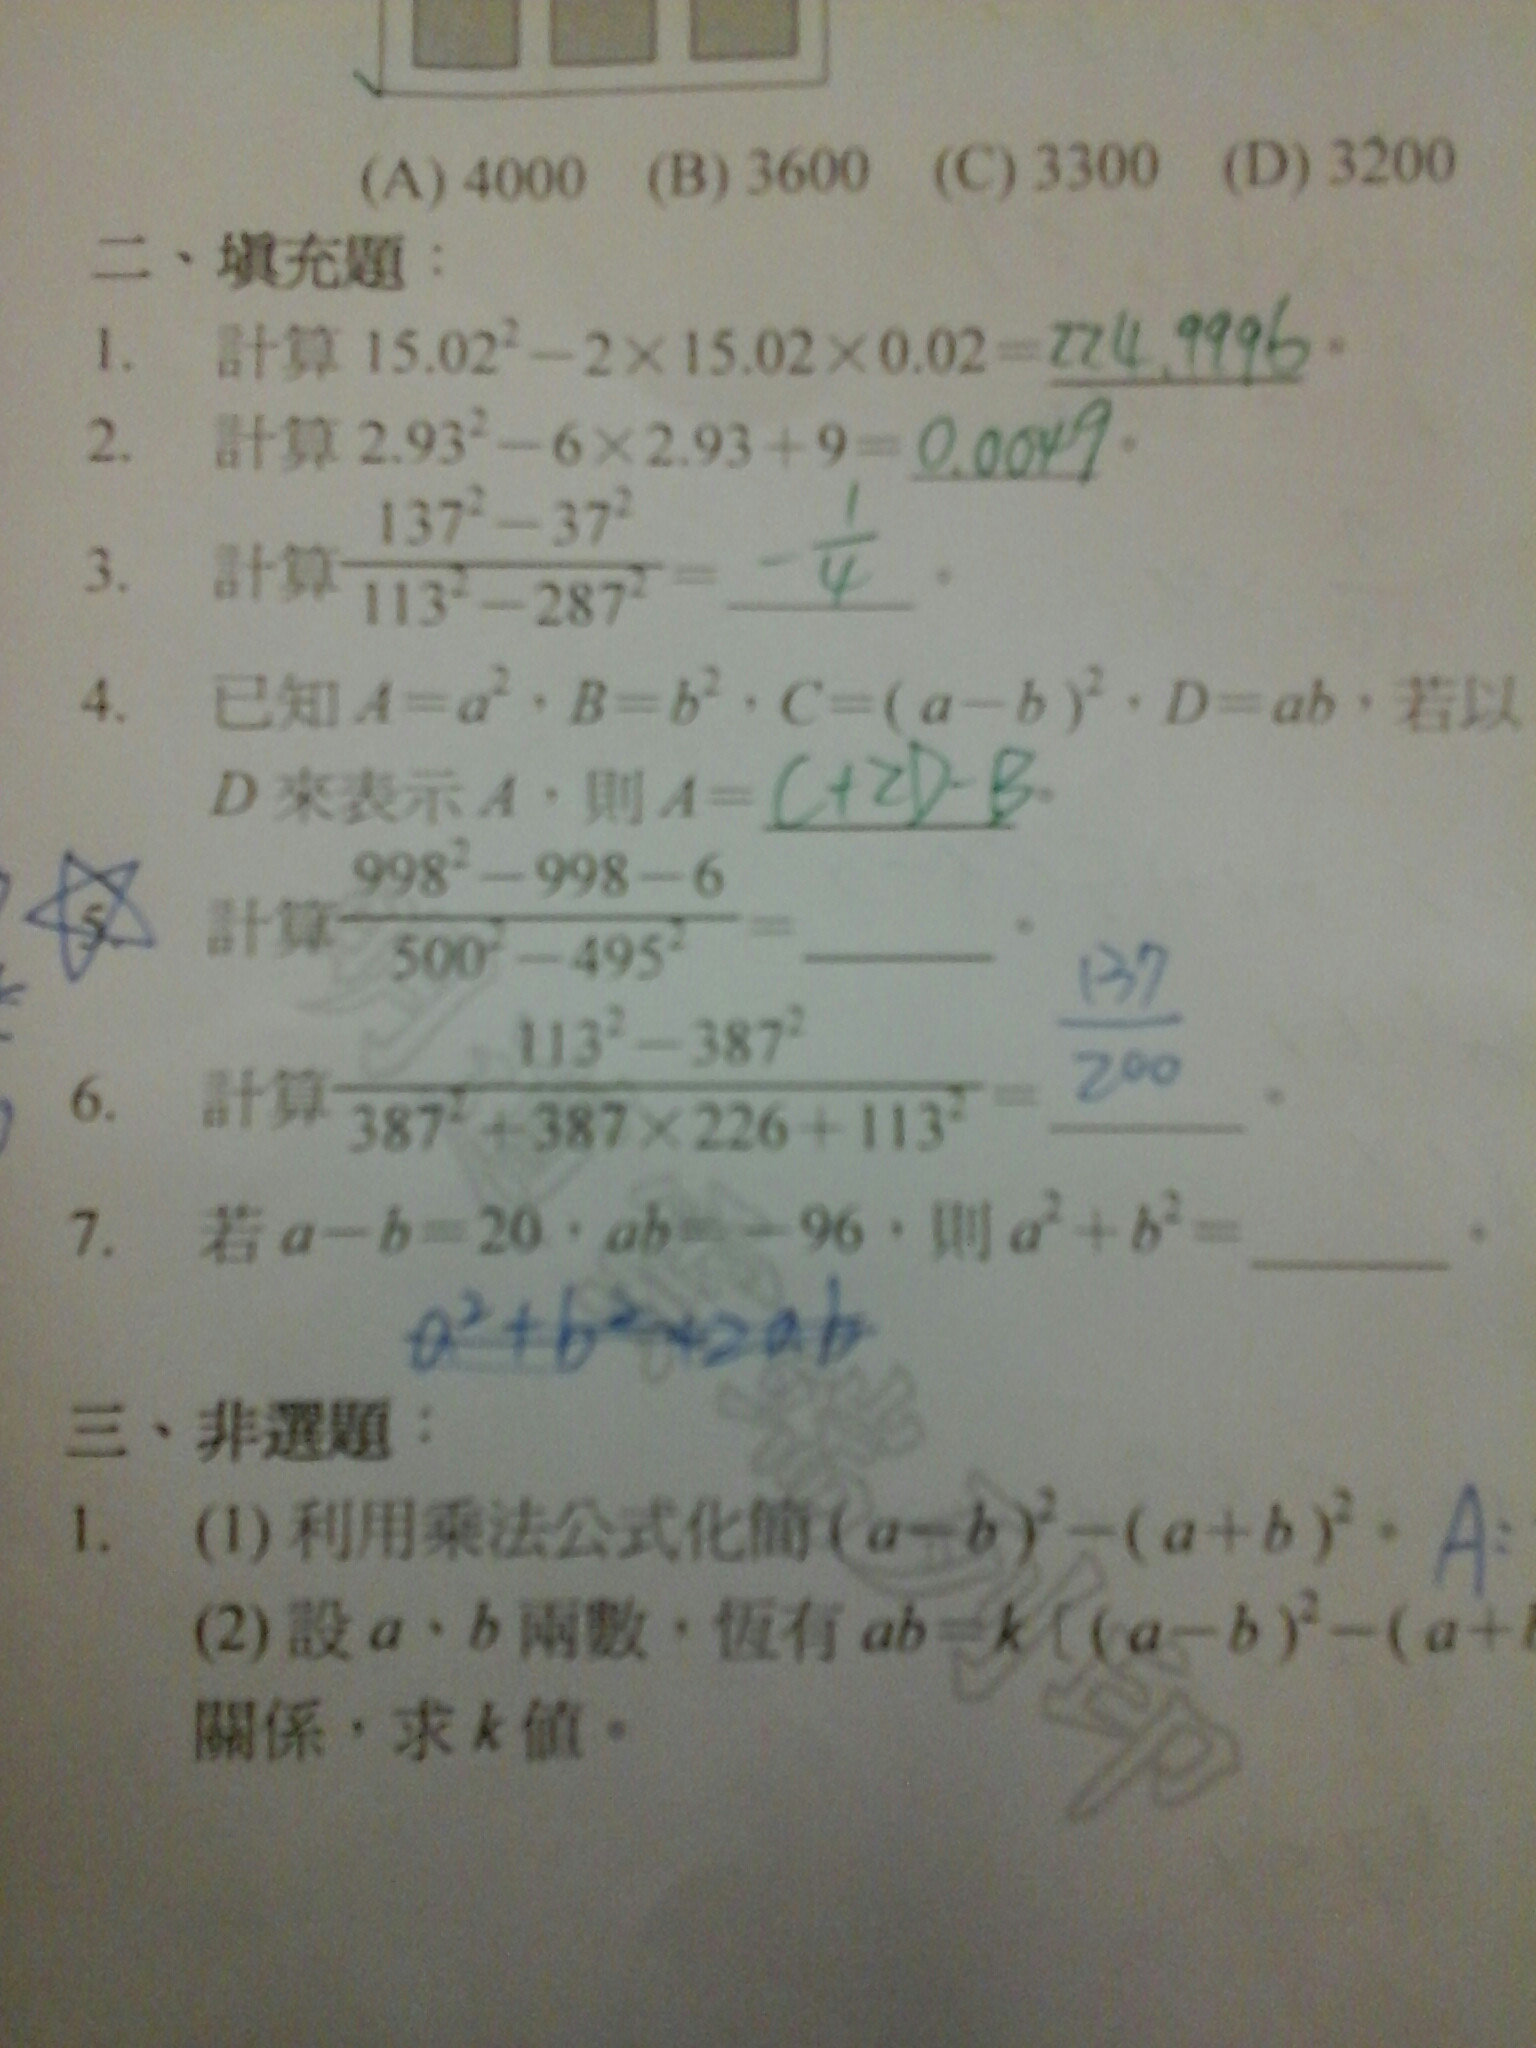 (A) 4000 (B) 3600 (C) 3300 (D) 3200
二、填充題：
1. 計算 15.02²－2×15.02×0.02＝224.9996。
2. 計算 2.93²－6×2.93＋9＝0.0049。
3. 計算 (137²－37²)/(113²－287²)＝－1/4。
4. 已知 A＝a²，B＝b²，C＝(a－b)²，D＝ab，若以
D 來表示 A，則 A＝C+2D-B。
5. 計算 (998²－998－6)/(500²－495²)＝______。
6. 計算 (113²－387²)/(387²＋387×226＋113²)＝137/200。
7. 若 a－b＝20，ab＝－96，則 a²＋b²＝______。
a²+b²+2ab
三、非選題：
1. (1) 利用乘法公式化簡 (a－b)²－(a＋b)²。 A:
(2) 設 a、b 兩數，恆有 ab＝k〔(a－b)²－(a＋b
關係，求 k 值。